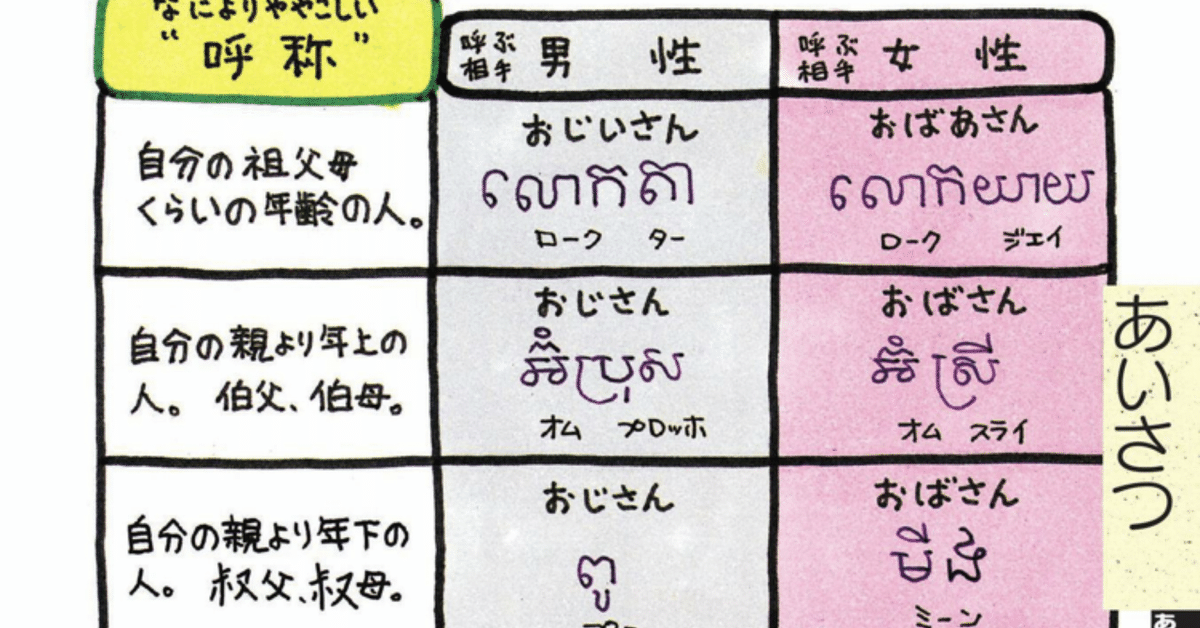 なによりややこしい
“呼称”
呼ぶ相手 男性
呼ぶ相手 女性
自分の祖父母
くらいの年齢の人。
おじいさん
លោកតា
ローク ター
おばあさん
លោកយាយ
ローク ジェイ
自分の親より年上の
人。伯父、伯母。
おじさん
អ៊ំប្រុស
オム プロッホ
おばさん
អ៊ំស្រី
オム スライ
自分の親より年下の
人。叔父、叔母。
おじさん
ពូ
おばさん
មីង
ミーン
あいさつ
あ